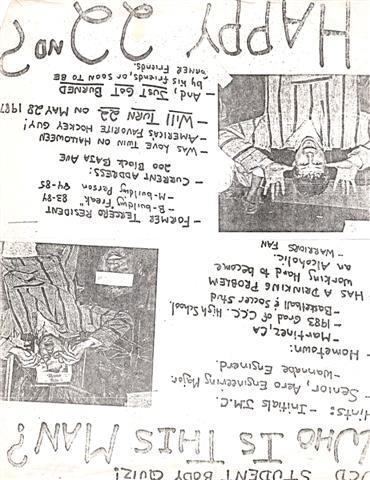 UCD STUDENT BODY QUIZ!
WHO IS THIS MAN?
Hints: - Initials J.M.C.
- Senior, Aero Engineering Major.
- Wannabe Enginerd.
- Hometown:
- Martinez, CA
- 1983 Grad of C.C.C. High School.
- Basketball & Soccer Stud
HAS A DRINKING PROBLEM
Working Hard to become
an Alcoholic.
- WARRIORS FAN
- FORMER TERCERO RESIDENT
- B-building "Freak" 83-84
- M-building Person 84-85
- CURRENT ADDRESS:
200 Block BAJA AVE
- WAS LOVE TWIN ON HALLOWEEN
- AMERICAS FAVORITE HOCKEY GUY!
- WILL TURN 22 ON MAY 28 1987
- And, JUST GOT BURNED
by his friends, or soon to be
FORMER friends.
HAPPY 22ND?